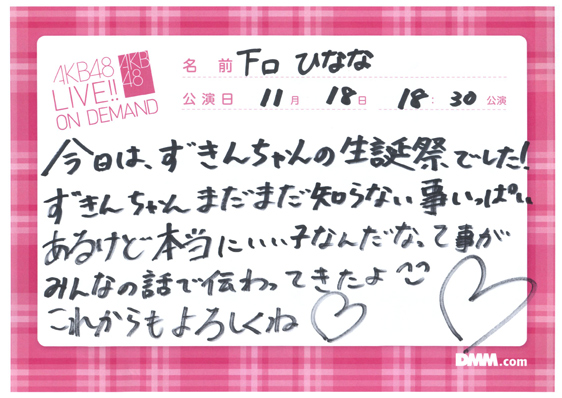 AKB48
LIVE!!
ON DEMAND
AKB
48
名 前 下口 ひなな
公演日 11月 18日 18:30 公演
今日は、ずきんちゃんの生誕祭でした!
ずきんちゃんまだまだ知らない事いっぱい
あるけど本当にいい子なんだなって事が
みんなの話で伝わってきたよ
これからもよろしくね
DMM.com